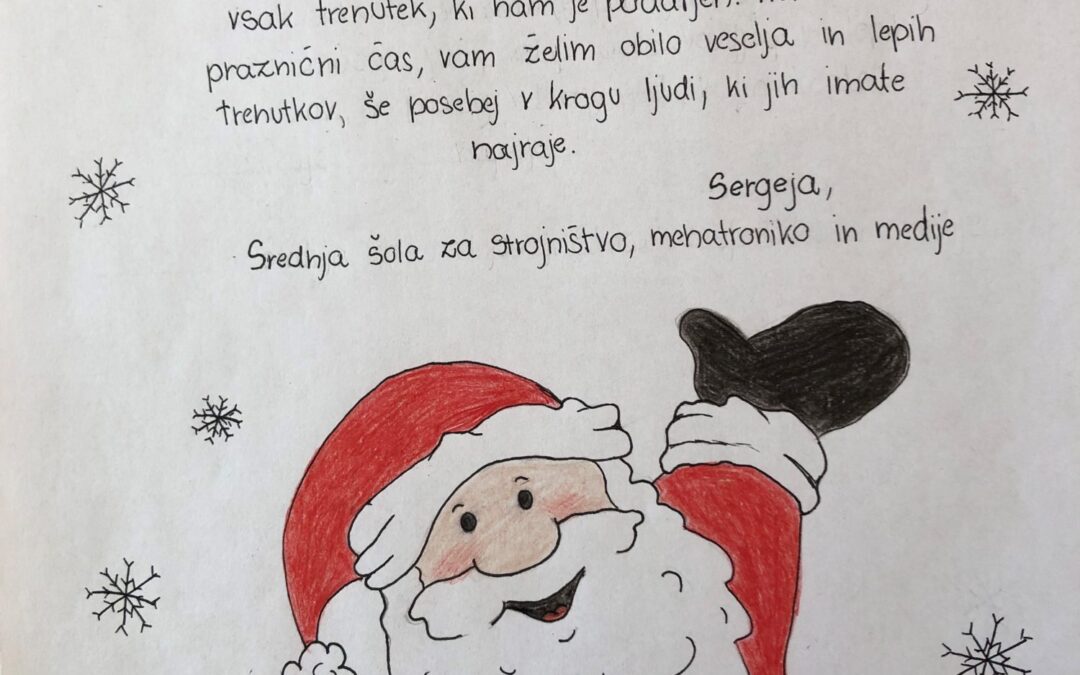 vsak trenutek, ki nam je
praznični čas, vam želim obilo veselja in lepih
trenutkov, še posebej v krogu ljudi, ki jih imate
najraje.
Sergeja,
Srednja šola za strojništvo, mehatroniko in medije